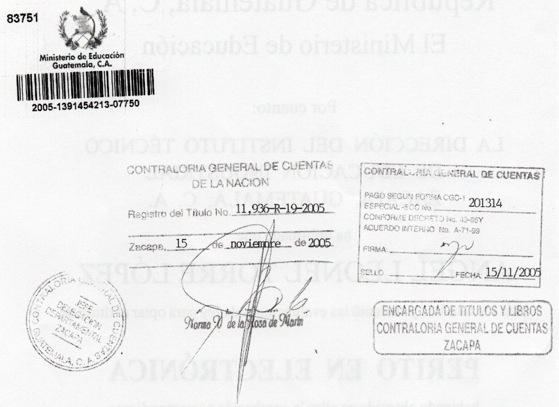 83751
Ministerio de Educación
Guatemala, C.A.
2005-1391454213-07750
República de Guatemala, C. A.
El Ministerio de Educación
Por cuanto:
LA DIRECCIÓN DEL INSTITUTO TÉCNICO
CONTRALORIA GENERAL DE CUENTAS
DE LA NACION
Registro del Título No. 11,936-R-19-2005
Zacapa, 15 de noviembre de 2005
Norma V. de la Rosa de Marín
CONTRALORIA GENERAL DE CUENTAS
PAGO SEGUN FORMA CGC-1
ESPECIAL -SCC No. 201314
CONFORME DECRETO No.
ACUERDO INTERNO No. A-71-99
FIRMA
SELLO FECHA 15/11/2005
CONTRALORIA GENERAL DE CUENTAS
JEFE
DELEGACION
DEPARTAMENTAL
ZACAPA
GUATEMALA, C.A.
ENCARGADA DE TITULOS Y LIBROS
CONTRALORIA GENERAL DE CUENTAS
ZACAPA
PERITO EN ELECTRÓNICA